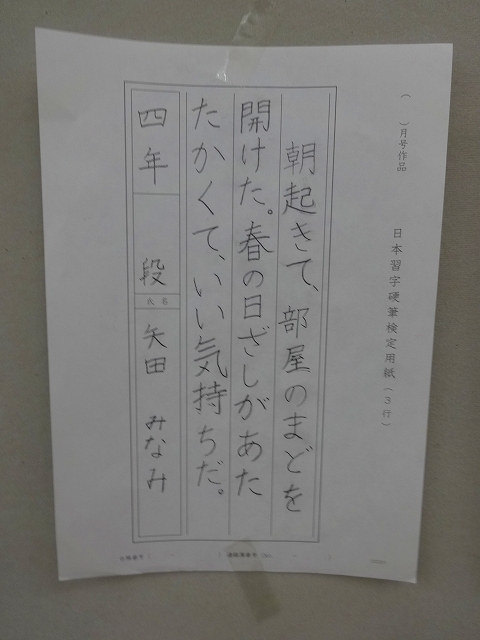 （　　）月号作品
日本習字硬筆検定用紙（3行）
朝起きて、部屋のまどを
開けた。春の日ざしがあた
たかくて、いい気持ちだ。
四年　段
氏名
矢田　みなみ